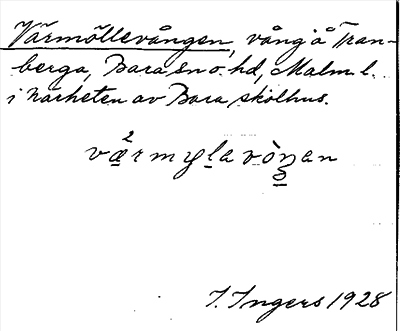 Värmöllevången, vång å Tran-
berga, Bara sn o. hd, Malm. l.
i närheten av Bara skolhus.
væ²rmyḷavòŋan
I. Ingers 1928